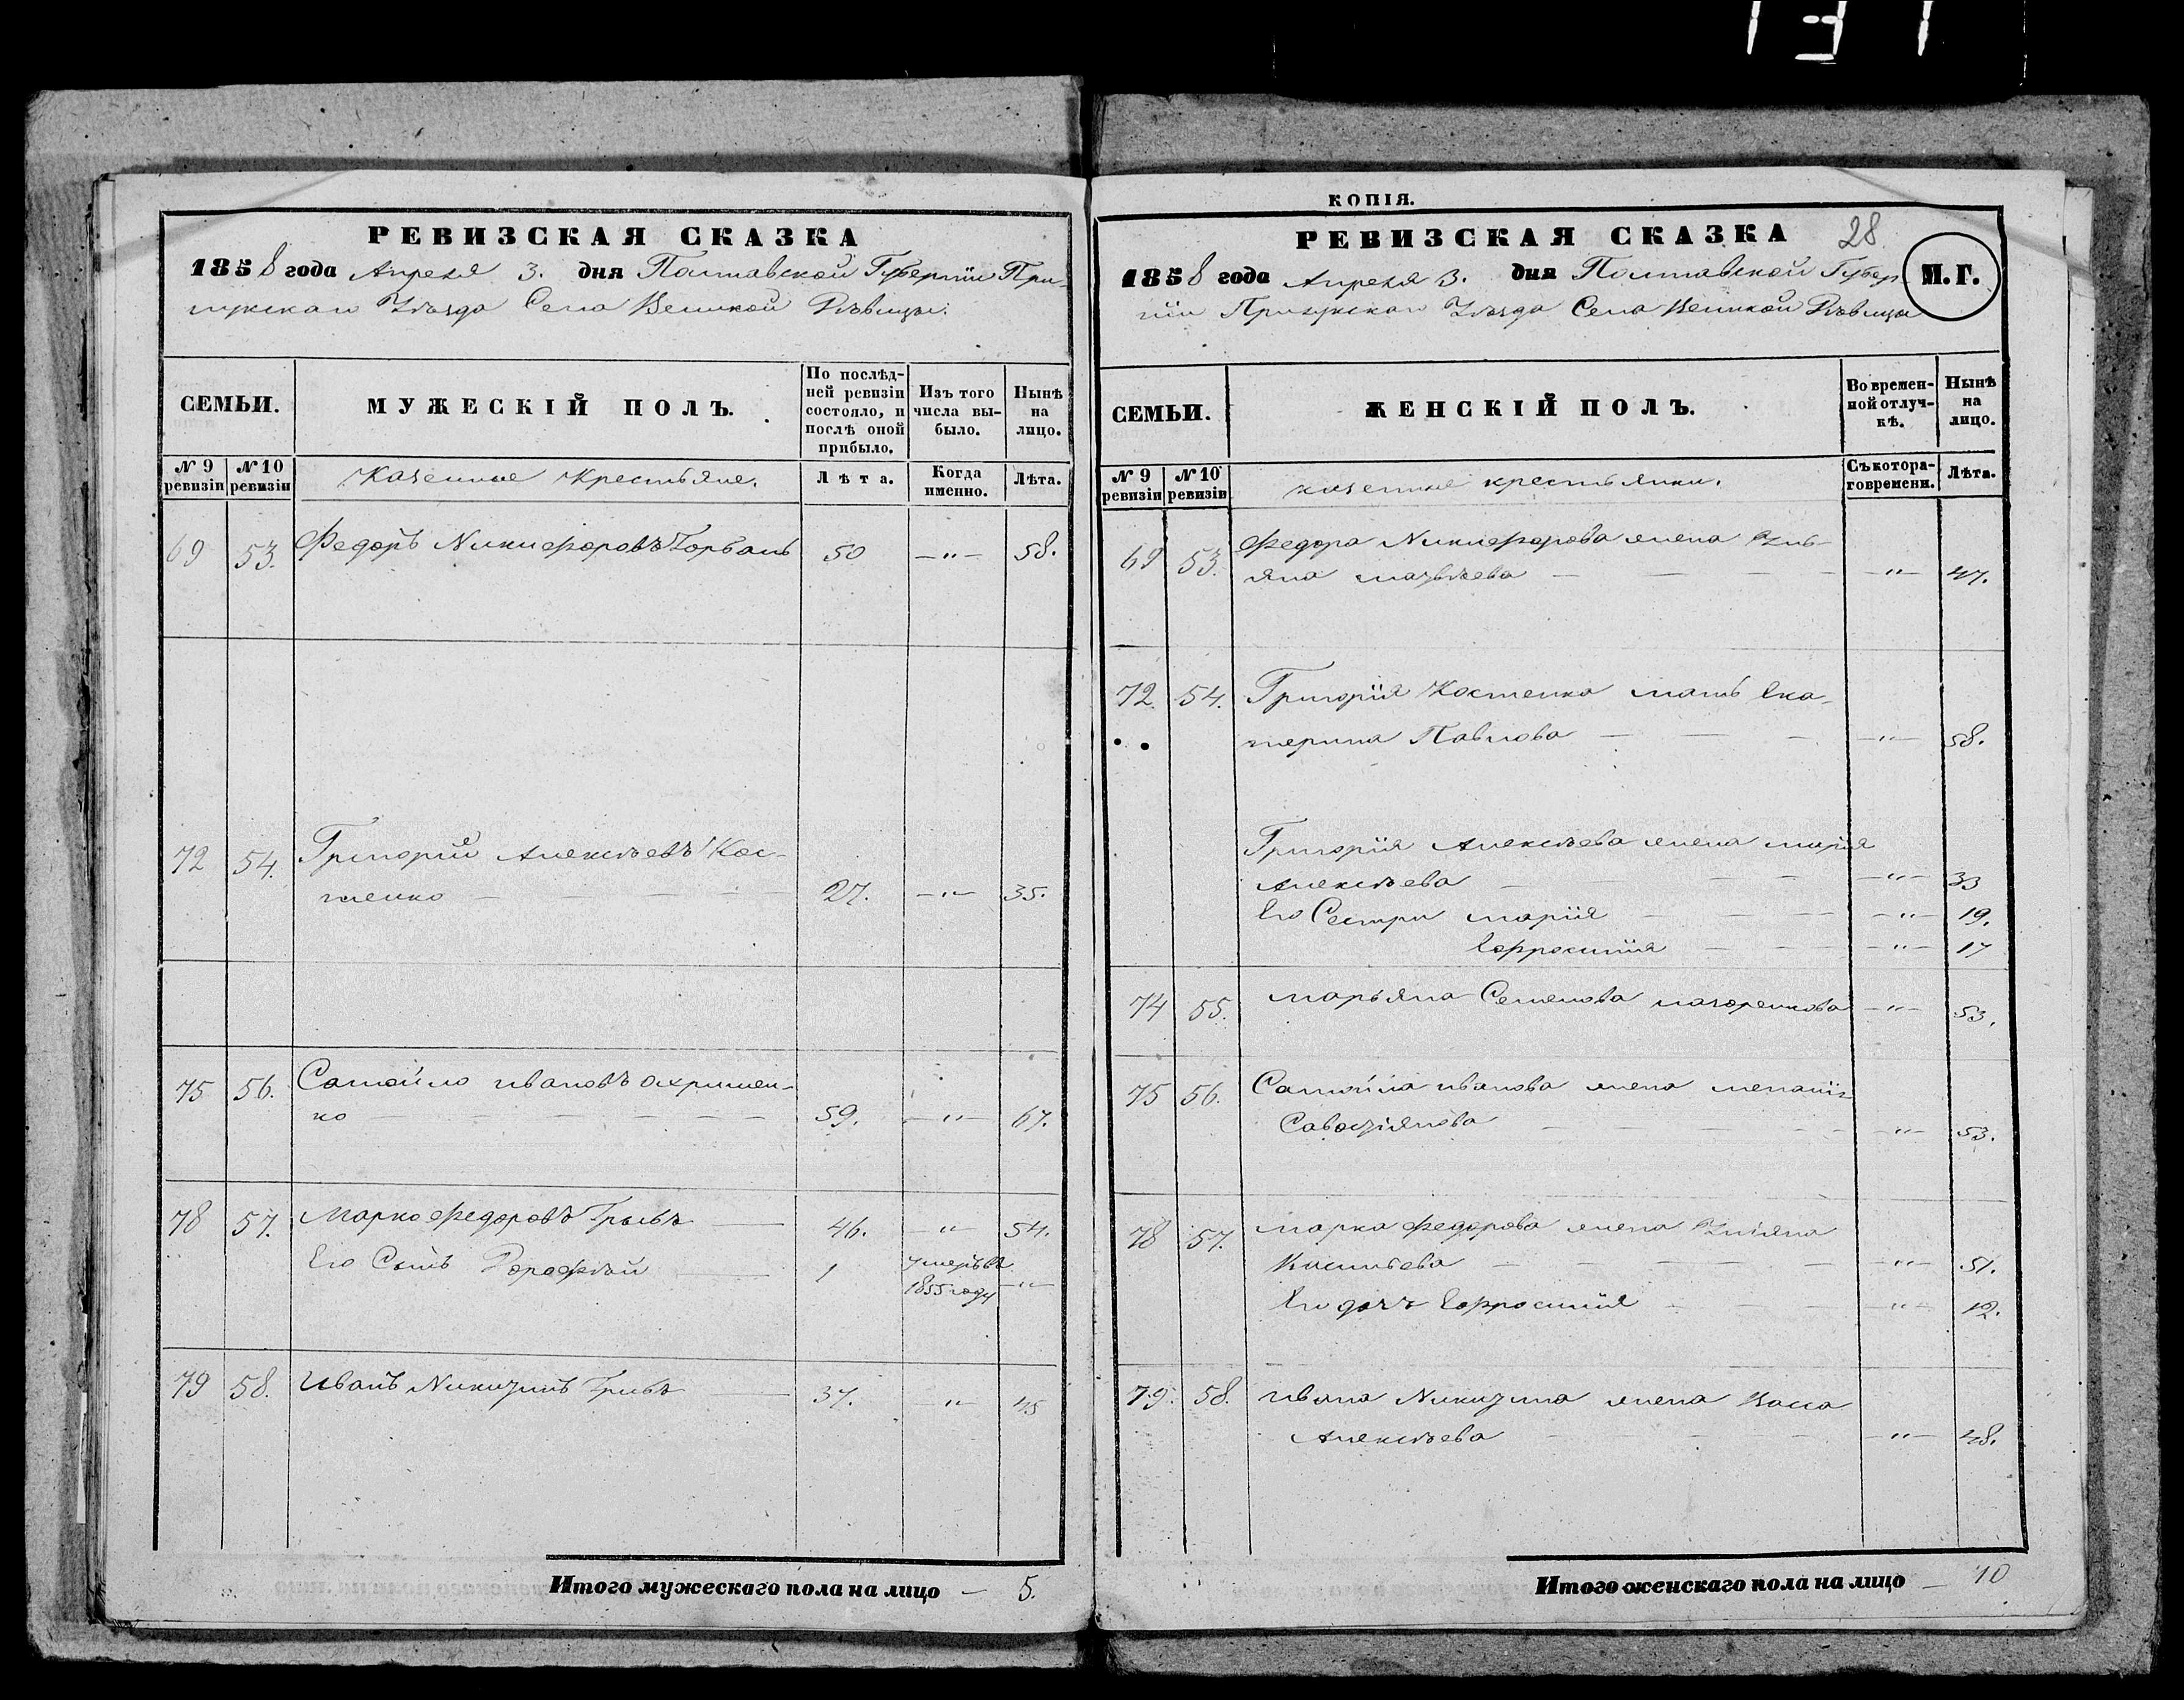 131
РЕВИЗСКАЯ СКАЗКА
1858 года Апреля 3. дня Полтавской Губернии При-
лукскаго Уѣзда Села Великой Дѣвицы.
СЕМЬИ.
МУЖЕСКІЙ ПОЛЪ.
По послѣд-
ней ревизіи
состояло, и
послѣ оной
прибыло.
Изъ того
числа вы-
было.
Нынѣ
на
лицо.
№ 9
ревизіи
№ 10
ревизіи
Казенные Крестьяне.
Лѣта.
Когда
именно.
Лѣта.
69 53. Федоръ Никифоровъ Горбань 50 —"— 58.
72 54. Григорій Алексѣевъ Кос-
тенко — — — — 27. —"— 35.
75 56. Самойло Ивановъ Охримен-
ко — — — — 59. —"— 67.
78 57. Марко Федоровъ Грывъ — 46. " 54.
Его Сынъ Дорофѣй — 1 умеръ въ
1855 году —"—
79 58. Иванъ Никитинъ Грывъ — 37. —"— 45
Итого мужескаго пола на лицо — 5.
КОПІЯ.
РЕВИЗСКАЯ СКАЗКА 28
М.Г.
1858 года Апреля 3. дня Полтавской Губер-
ніи Прилукскаго Уѣзда Села Великой Дѣвицы
СЕМЬИ.
ЖЕНСКІЙ ПОЛЪ.
Во времен-
ной отлуч-
кѣ.
Нынѣ
на
лицо.
№ 9
ревизіи
№ 10
ревизіи
казенные крестьянки.
Съ котора-
го времени.
Лѣта.
69 53. Федора Никифорова жена Уль-
яна Матвѣева — — — —"— 47.
72. 54. Григорія Костенка мать Ека-
терина Павлова — — — —"— 58.
Григорія Алексѣева жена Марія
Алексѣева — — — —"— 33
Его Сестры Марія — — — —"— 19.
Ефросинія — — — —"— 17
74 55. Марьяна Семенова —"— 53.
75 56. Самойла Иванова жена Меланія
Савостіянова — — — —"— 53.
78 57. Марка Федорова жена Уліяна
— — — —"— 51.
Его дочь Ефросинія — — — —"— 12.
79. 58. Ивана Никитина жена Васса
Алексѣева — — — —"— 48.
Итого женскаго пола на лицо — 10